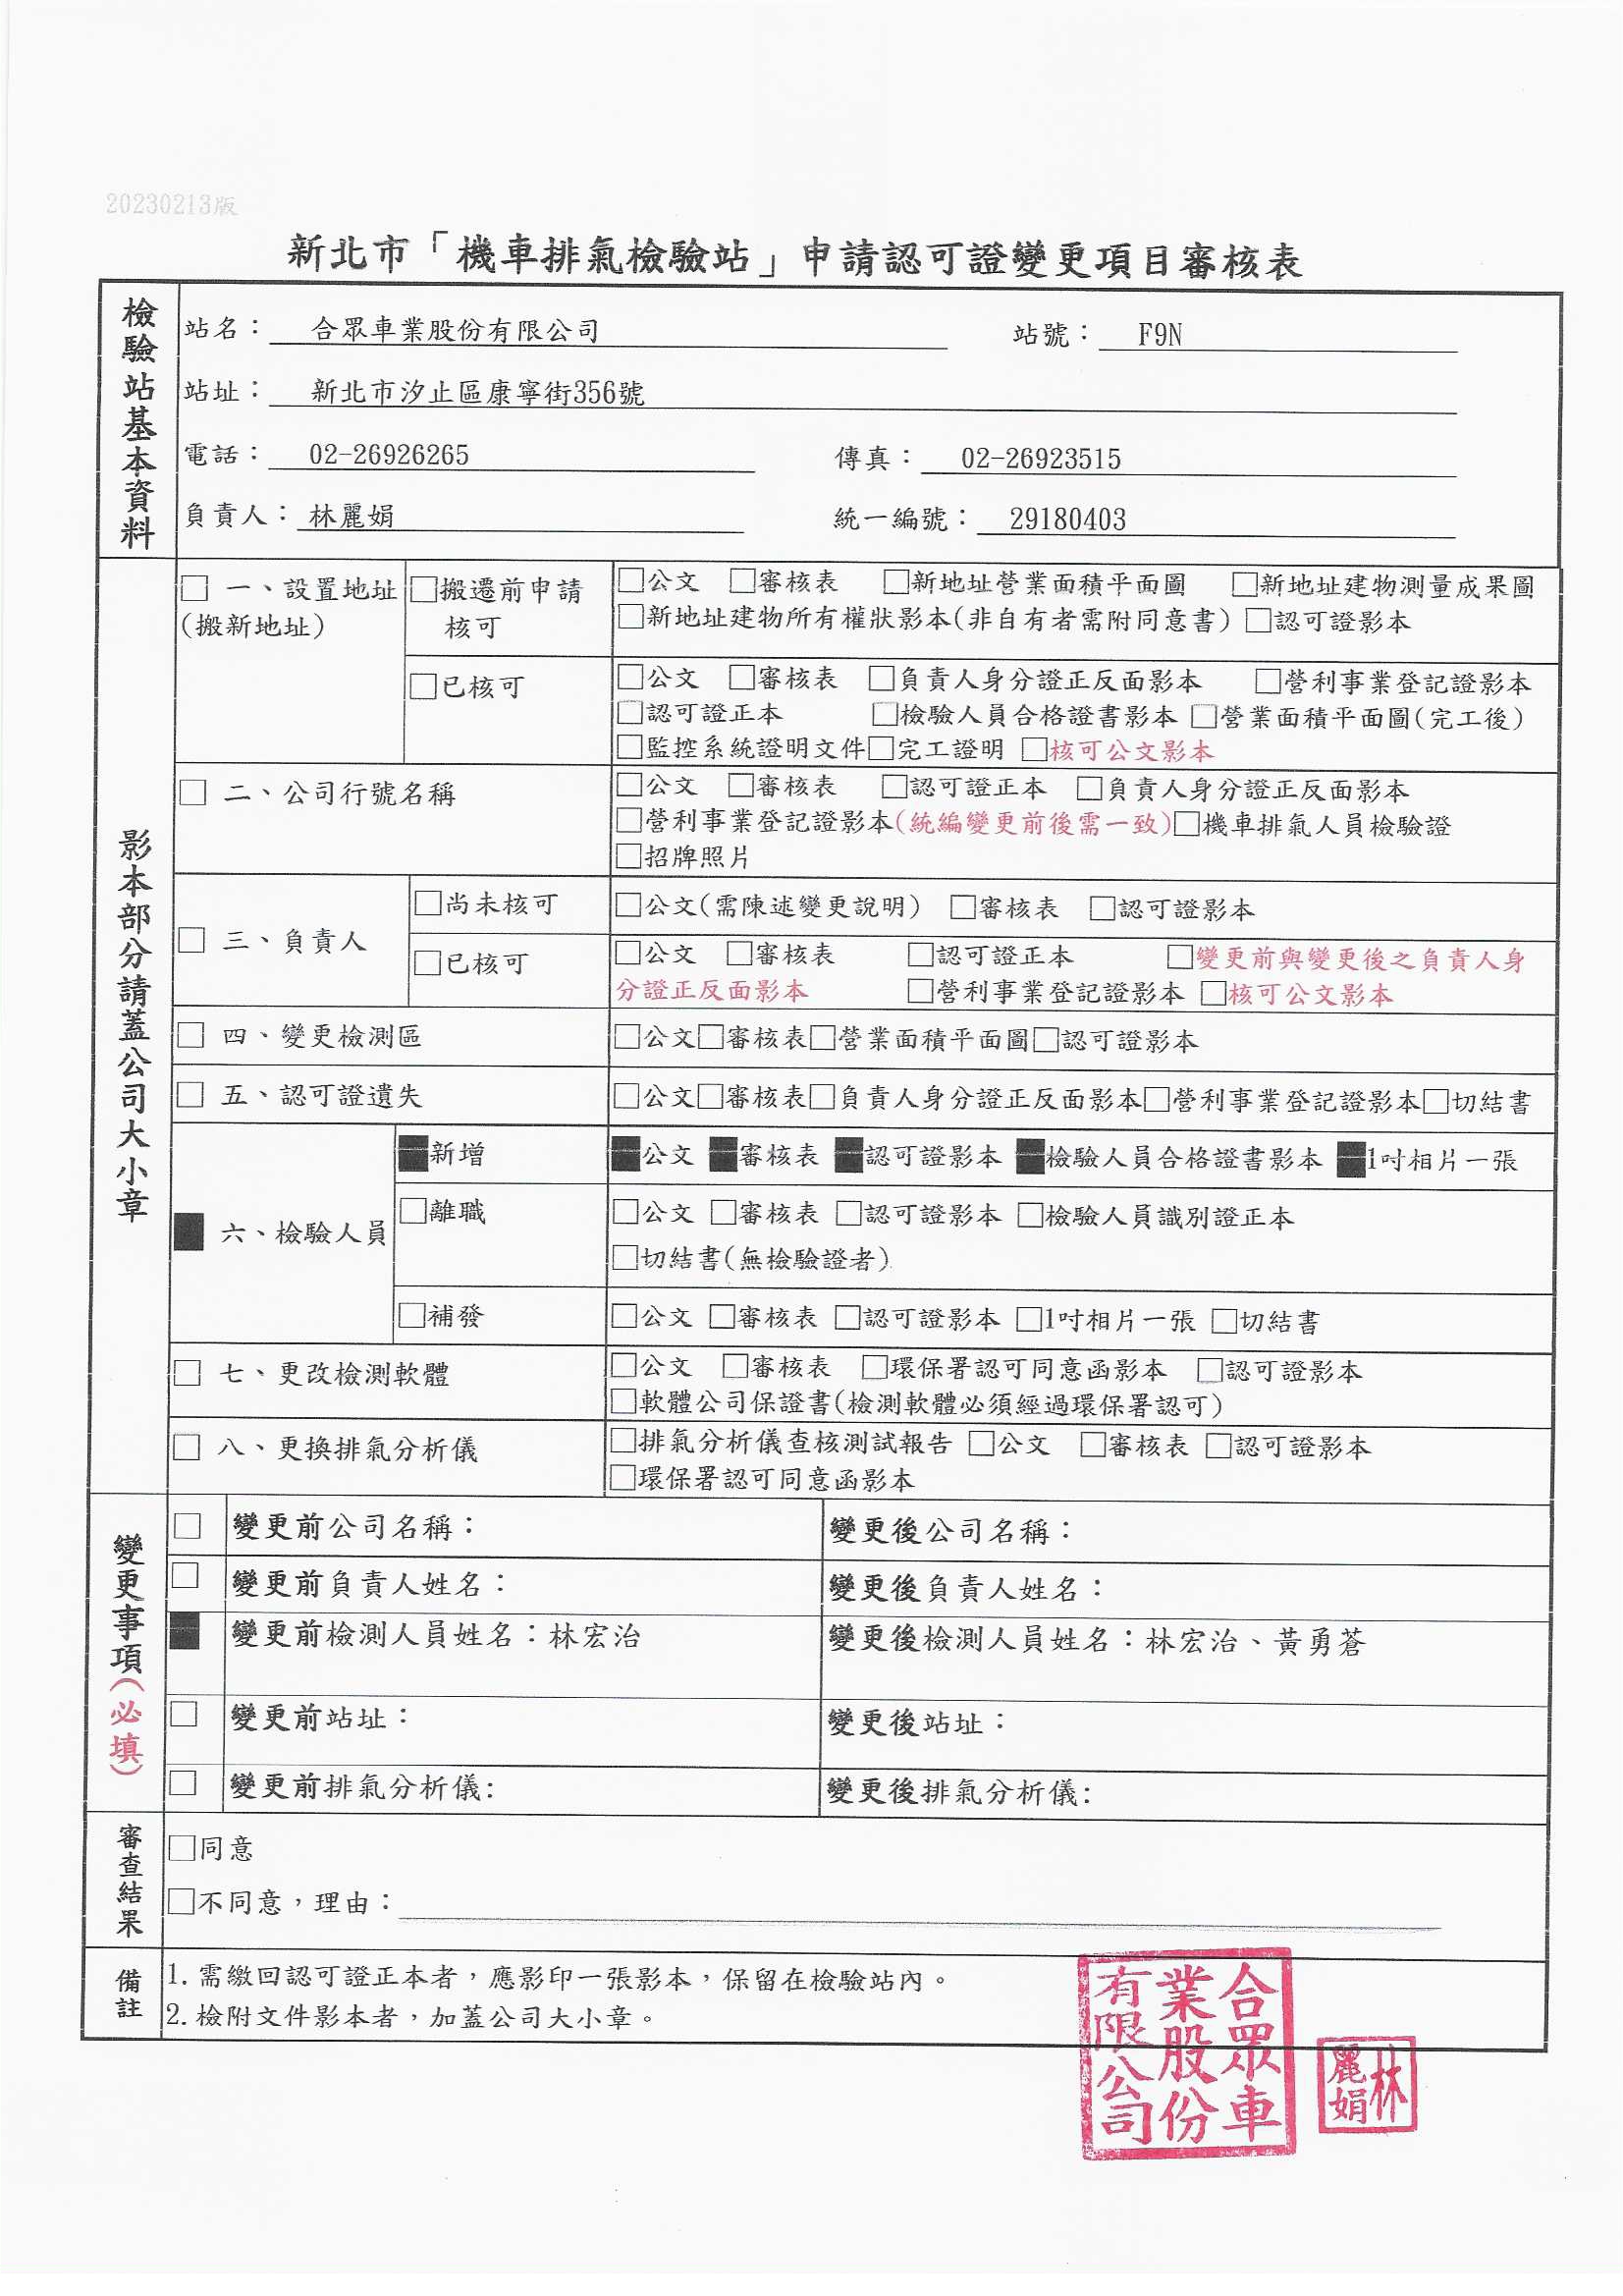 20230213版
新北市「機車排氣檢驗站」申請認可證變更項目審核表
檢驗站基本資料
站名： 合眾車業股份有限公司 站號： F9N
站址： 新北市汐止區康寧街356號
電話： 02-26926265 傳真： 02-26923515
負責人：林麗娟 統一編號： 29180403
影本部分請蓋公司大小章
□ 一、設置地址
(搬新地址)
□搬遷前申請
核可
□公文 □審核表 □新地址營業面積平面圖 □新地址建物測量成果圖
□新地址建物所有權狀影本(非自有者需附同意書) □認可證影本
□已核可
□公文 □審核表 □負責人身分證正反面影本 □營利事業登記證影本
□認可證正本 □檢驗人員合格證書影本 □營業面積平面圖(完工後)
□監控系統證明文件□完工證明 □核可公文影本
□ 二、公司行號名稱
□公文 □審核表 □認可證正本 □負責人身分證正反面影本
□營利事業登記證影本(統編變更前後需一致)□機車排氣人員檢驗證
□招牌照片
□ 三、負責人
□尚未核可
□公文(需陳述變更說明) □審核表 □認可證影本
□已核可
□公文 □審核表 □認可證正本 □變更前與變更後之負責人身
分證正反面影本 □營利事業登記證影本 □核可公文影本
□ 四、變更檢測區
□公文□審核表□營業面積平面圖□認可證影本
□ 五、認可證遺失
□公文□審核表□負責人身分證正反面影本□營利事業登記證影本□切結書
■ 六、檢驗人員
■新增
■公文 ■審核表 ■認可證影本 ■檢驗人員合格證書影本 ■1吋相片一張
□離職
□公文 □審核表 □認可證影本 □檢驗人員識別證正本
□切結書(無檢驗證者)
□補發
□公文 □審核表 □認可證影本 □1吋相片一張 □切結書
□ 七、更改檢測軟體
□公文 □審核表 □環保署認可同意函影本 □認可證影本
□軟體公司保證書(檢測軟體必須經過環保署認可)
□ 八、更換排氣分析儀
□排氣分析儀查核測試報告 □公文 □審核表 □認可證影本
□環保署認可同意函影本
變更事項(必填)
□ 變更前公司名稱： 變更後公司名稱：
□ 變更前負責人姓名： 變更後負責人姓名：
■ 變更前檢測人員姓名：林宏治 變更後檢測人員姓名：林宏治、黃勇蒼
□ 變更前站址： 變更後站址：
□ 變更前排氣分析儀: 變更後排氣分析儀:
審查結果
□同意
□不同意，理由：
備註
1.需繳回認可證正本者，應影印一張影本，保留在檢驗站內。
2.檢附文件影本者，加蓋公司大小章。
合眾車
業股份
有限公司
林
麗娟